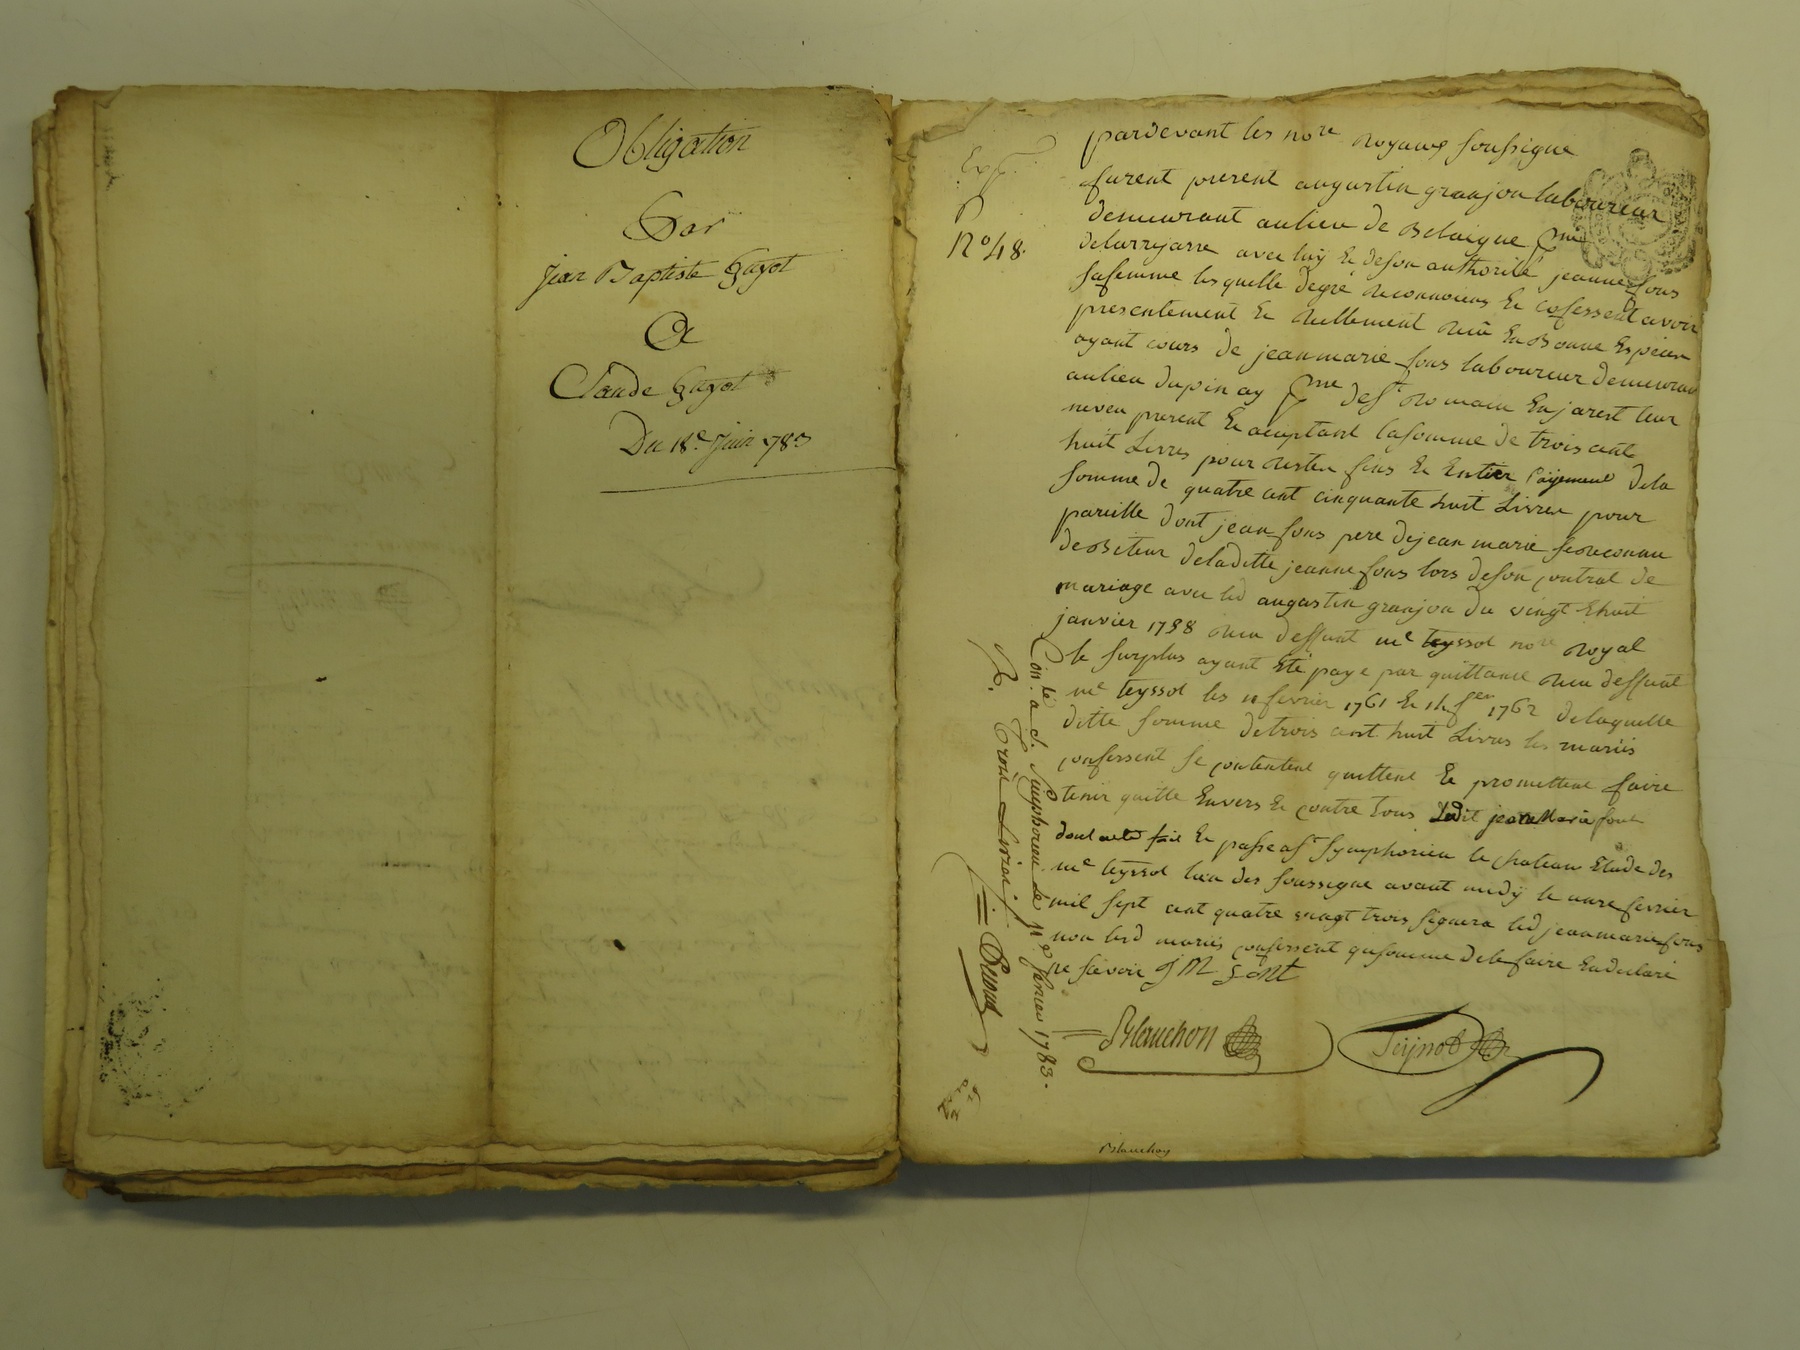 Obligation
Par
Jean Baptiste Guyot
A
Claude Guyot
Du 18e. Juin 1783
Exp.
No 48.
pardevant les nore royaux soussigne
furent present augustin granjon laboureur
demeurant au lieu de Belaigue
delarrajasse avec luy & deson authorité jeanne fons
safemme lesquelle degré reconnoiens & cofessent avoir
presentement & reellement reçu En Bonne Espèces
ayant cours de jeanmarie fons laboureur demeurant
aulieu dupinay pne de st romain Enjarest leur
neveu present & aceptant lasomme de trois cent
huit Livres pour restes fins & Entier Payement dela
somme de quatre cent cinquante huit Livres pour
pareille dont jean fons pere dejean marie se reconnu
debiteur deladitte jeanne fons lors deson contrat de
mariage avec led augustin granjon du vingt & huit
janvier 1758 reçu deffunt me teyssot nore royal
le surplus ayant Eté payé par quittance reçu deffunt
me teyssot les 11 fevrier 1761 & 14 fer 1762 delaquelle
ditte somme detrois cent huit Livres les mariés
confessent se contentent quittent & promettent faire
tenir quitte Envers & contre tous Ledit jean Marie font
dont acte fait & passe a st symphorien le chateau Etude des
me teyssot lun des soussigne avant midy le onze fevrier
mil sept cent quatre vingt trois signera led jeanmarie fons
non lesd mariés confessent quisomme dele faire En declaré
ne savoir J M Font
Blanchon Teyssot
Con. lé. a S. Simphorien le 11e. fevrier 1783.
R. Trois Livres
Blanchon